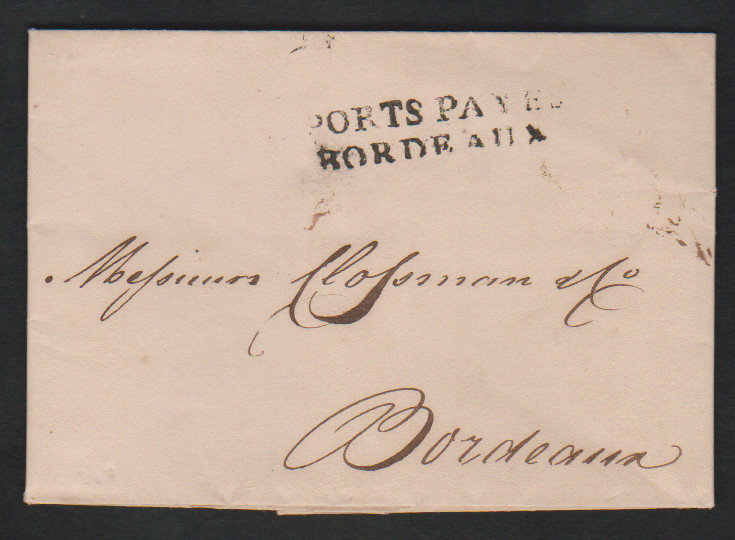 PORTS PAYES
BORDEAUX
Messieurs Clossman & Co
Bordeaux